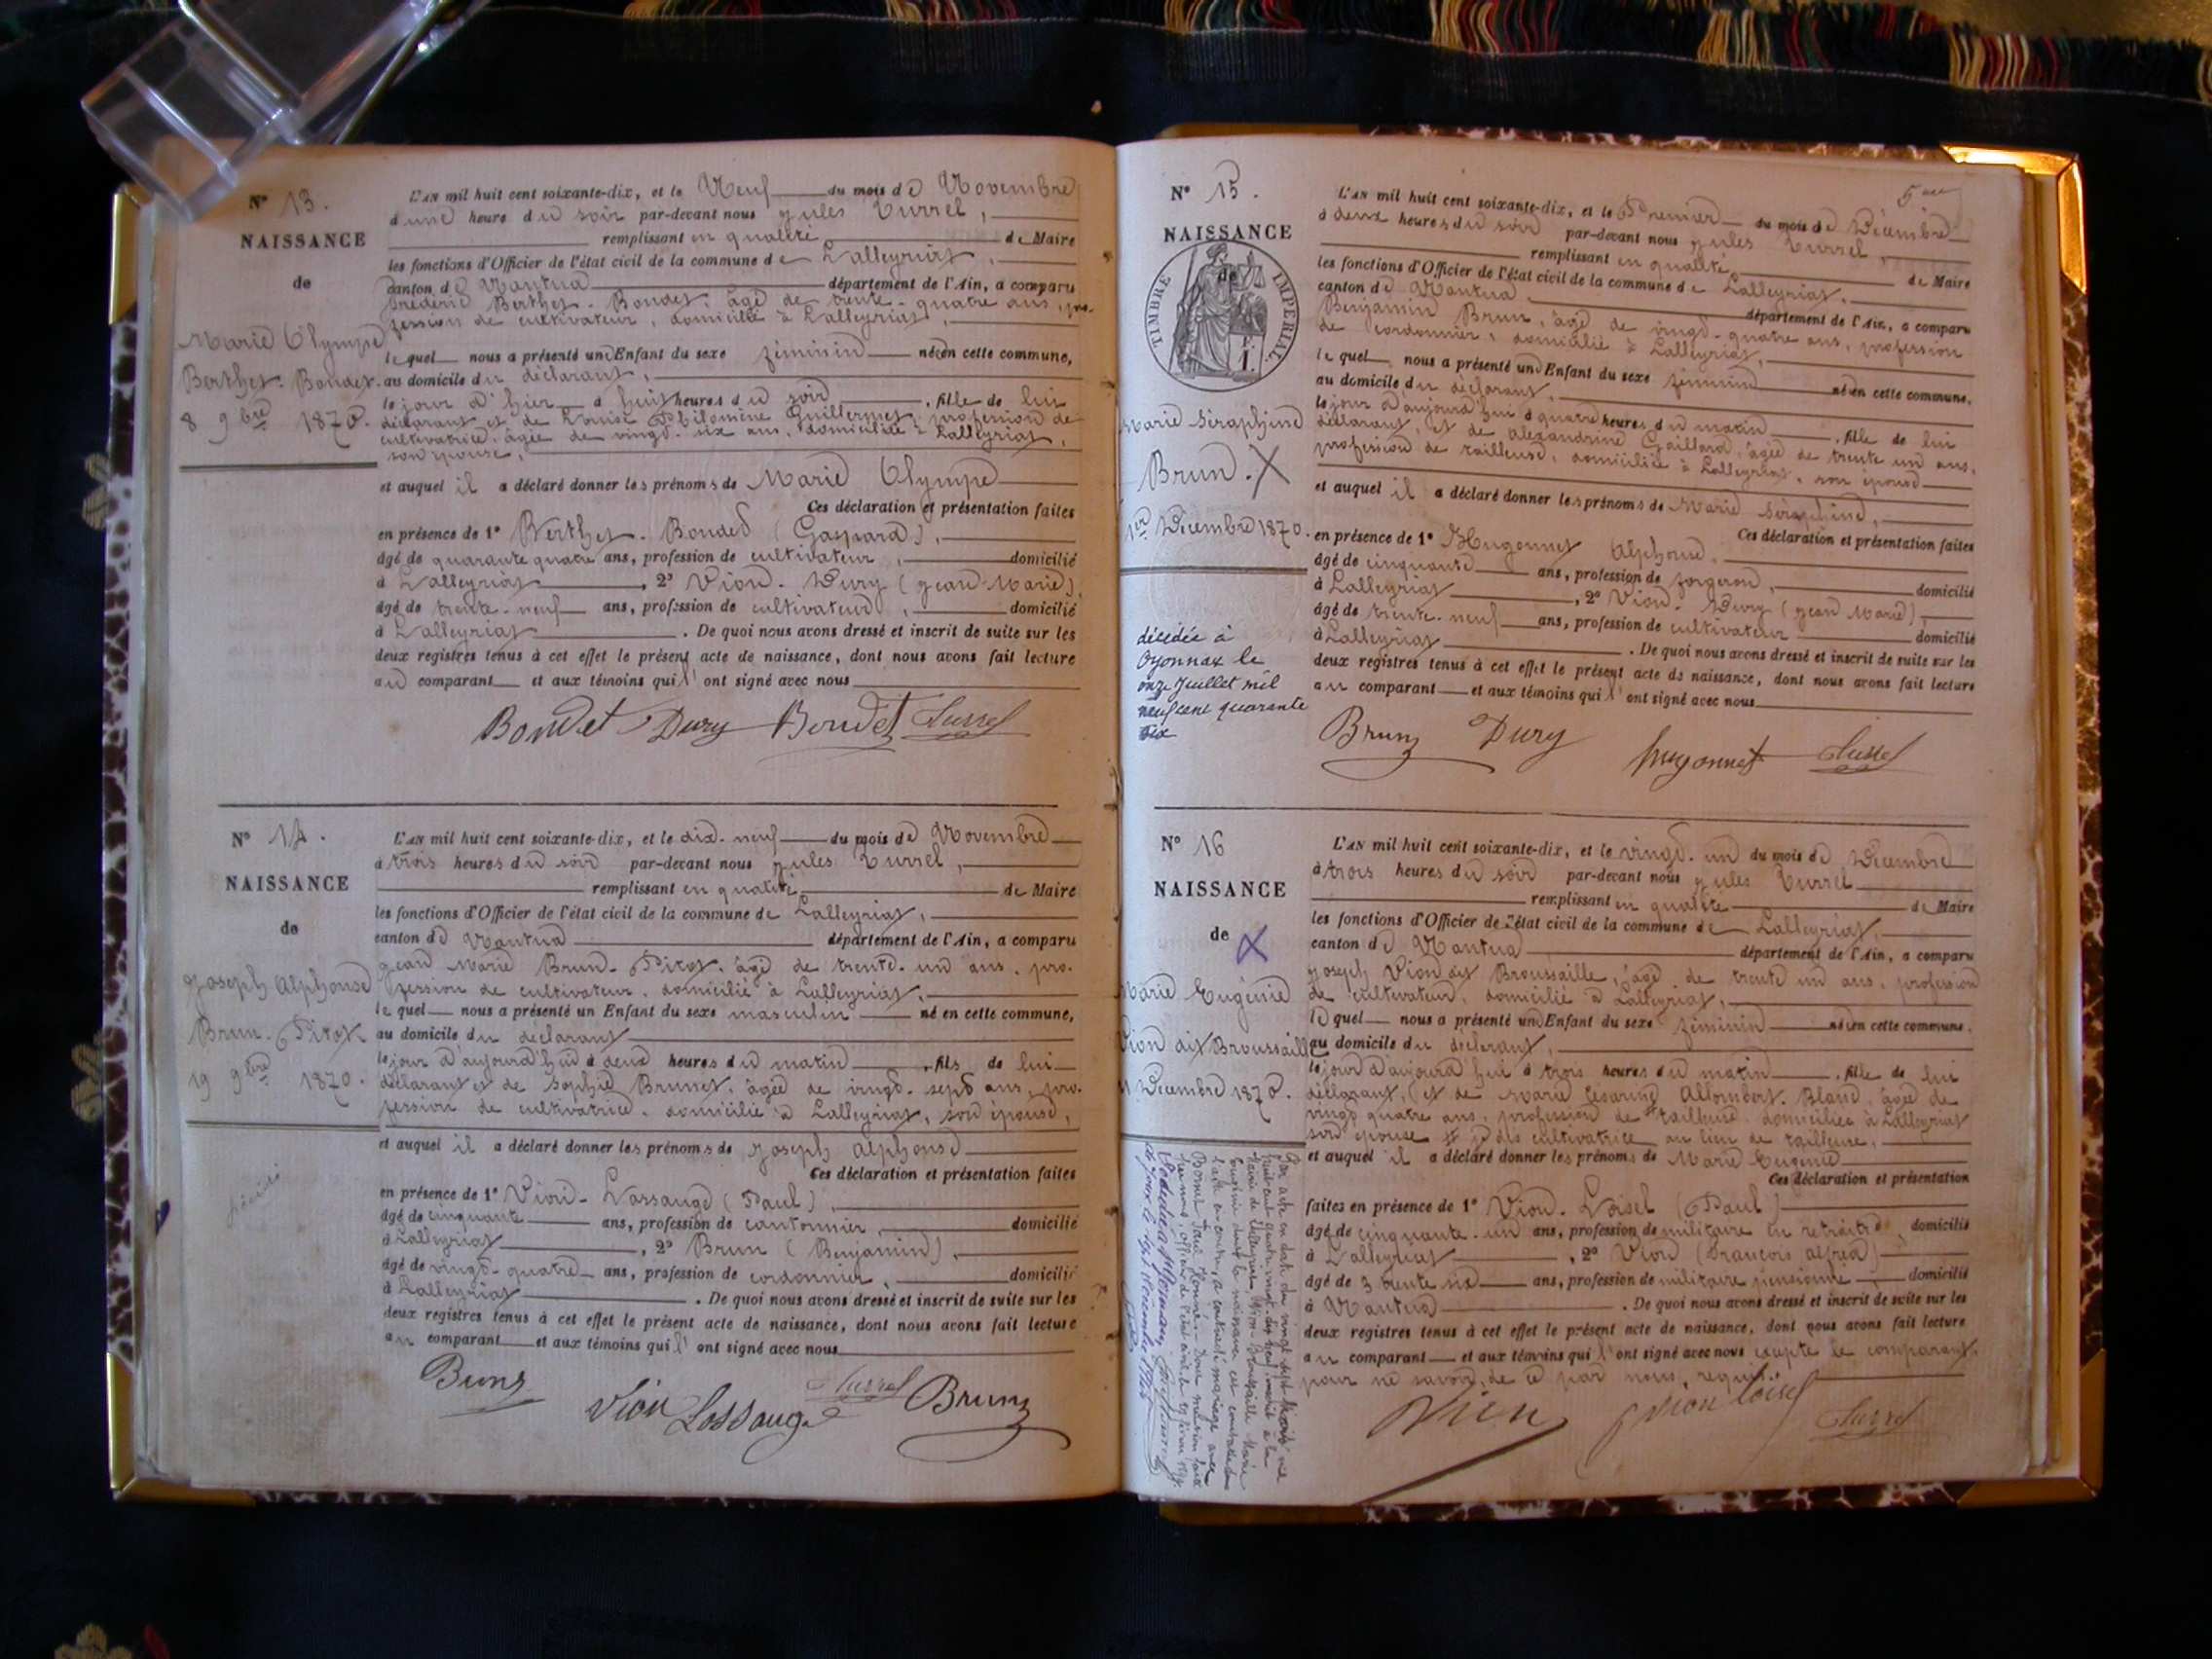 N° 13.
NAISSANCE
de
Marie Olympe
Berthet-Bondet.
8 9bre 1870.
L'AN mil huit cent soixante-dix, et le Neuf du mois de Novembre
à une heure du soir par-devant nous Jules Turrel,
remplissant en qualité de Maire
les fonctions d'Officier de l'état civil de la commune de Lalleyriat,
canton de Nantua département de l'Ain, a comparu
Frédéric Berthet-Bondet, âgé de trente-quatre ans, pro-
fession de cultivateur, domicilié à Lalleyriat,
lequel nous a présenté un Enfant du sexe féminin née en cette commune,
au domicile du déclarant,
le jour d'hier à huit heures du soir, fille de lui
déclarant et de Louise Philomène Guillermet, profession de
cultivatrice, âgée de vingt-six ans, domiciliée à Lalleyriat,
son épouse,
et auquel il a déclaré donner les prénoms de Marie Olympe
Ces déclaration et présentation faites
en présence de 1° Berthet-Bondet (Gaspard),
âgé de quarante quatre ans, profession de cultivateur, domicilié
à Lalleyriat, 2° Vion-Dury (Jean-Marie),
âgé de trente-neuf ans, profession de cultivateur, domicilié
à Lalleyriat. De quoi nous avons dressé et inscrit de suite sur les
deux registres tenus à cet effet le présent acte de naissance, dont nous avons fait lecture
au comparant et aux témoins qui l'ont signé avec nous
Bondet Dury Bondet Turrel
N° 14.
NAISSANCE
de
Joseph Alphonse
Brun-Pitot.
19 9bre 1870.
décédé
L'AN mil huit cent soixante-dix, et le dix-neuf du mois de Novembre
à trois heures du soir par-devant nous Jules Turrel,
remplissant en qualité de Maire
les fonctions d'Officier de l'état civil de la commune de Lalleyriat,
canton de Nantua département de l'Ain, a comparu
Jean Marie Brun-Pitot, âgé de trente-un ans, pro-
fession de cultivateur, domicilié à Lalleyriat,
lequel nous a présenté un Enfant du sexe masculin né en cette commune,
au domicile du déclarant
le jour d'aujourd'hui à deux heures du matin, fils de lui
déclarant et de Sophie Brunet, âgée de vingt-sept ans, pro-
fession de cultivatrice, domicilié à Lalleyriat, son épouse,
et auquel il a déclaré donner les prénoms de Joseph Alphonse
Ces déclaration et présentation faites
en présence de 1° Vion-Lassauge (Paul),
âgé de cinquante ans, profession de cantonnier, domicilié
à Lalleyriat, 2° Brun (Benjamin),
âgé de vingt-quatre ans, profession de cordonnier, domicilié
à Lalleyriat. De quoi nous avons dressé et inscrit de suite sur les
deux registres tenus à cet effet le présent acte de naissance, dont nous avons fait lecture
au comparant et aux témoins qui l'ont signé avec nous
Brun Vion Lassauge Turrel Brun
5me
N° 15.
NAISSANCE
de
TIMBRE IMPERIAL
Marie Séraphine
Brun. X
1er Décembre 1870.
décédée à
Oyonnax le
onze Juillet mil
neuf cent quarante
six
L'AN mil huit cent soixante-dix, et le Premier du mois de Décembre
à deux heures du soir par-devant nous Jules Turrel,
remplissant en qualité de Maire
les fonctions d'Officier de l'état civil de la commune de Lalleyriat,
canton de Nantua, département de l'Ain, a comparu
Benjamin Brun, âgé de vingt-quatre ans, profession
de cordonnier, domicilié à Lalleyriat,
lequel nous a présenté un Enfant du sexe féminin née en cette commune,
au domicile du déclarant,
le jour d'aujourd'hui à quatre heures du matin, fille de lui
déclarant, et de Alexandrine Gaillard, âgée de trente un ans,
profession de tailleuse, domiciliée à Lalleyriat, son épouse
et auquel il a déclaré donner les prénoms de Marie Séraphine,
Ces déclaration et présentation faites
en présence de 1° Hugonnet Alphonse,
âgé de cinquante ans, profession de forgeron, domicilié
à Lalleyriat, 2° Vion-Dury (Jean Marie),
âgé de trente-neuf ans, profession de cultivateur domicilié
à Lalleyriat. De quoi nous avons dressé et inscrit de suite sur les
deux registres tenus à cet effet le présent acte de naissance, dont nous avons fait lecture
au comparant et aux témoins qui l'ont signé avec nous
Brun Dury hugonnet Turrel
N° 16
NAISSANCE
de X
Marie Eugénie
Vion dit Broussaille
Décembre 1870.
Par acte en date du vingt sept
Mairie de Lalleyriat, Vion-Broussaille Marie
Eugénie dont la naissance est constatée dans
l'acte ci-contre, a contracté mariage avec
L'AN mil huit cent soixante-dix, et le vingt-un du mois de Décembre
à trois heures du soir par-devant nous Jules Turrel
remplissant en qualité de Maire
les fonctions d'Officier de l'état civil de la commune de Lalleyriat,
canton de Nantua département de l'Ain, a comparu
Joseph Vion dit Broussaille, âgé de trente un ans, profession
de cultivateur, domicilié à Lalleyriat,
lequel nous a présenté un Enfant du sexe féminin née en cette commune,
au domicile du déclarant,
le jour d'aujourd'hui à trois heures du matin, fille de lui
déclarant, et de Marie Césarine Allombert-Blanc, âgée de
vingt quatre ans, profession de # tailleuse, domiciliée à Lalleyriat
son épouse # je dis cultivatrice au lieu de tailleuse,
et auquel il a déclaré donner les prénoms de Marie Eugénie
Ces déclaration et présentation
faites en présence de 1° Vion-Loisel (Paul)
âgé de cinquante-un ans, profession de militaire en retraite, domicilié
à Lalleyriat, 2° Vion (François Alfred)
âgé de trente six ans, profession de militaire pensionné domicilié
à Nantua. De quoi nous avons dressé et inscrit de suite sur les
deux registres tenus à cet effet le présent acte de naissance, dont nous avons fait lecture
au comparant et aux témoins qui l'ont signé avec nous excepté le comparant,
pour ne savoir, de ce par nous, requis
Vion Vion Loisel Turrel